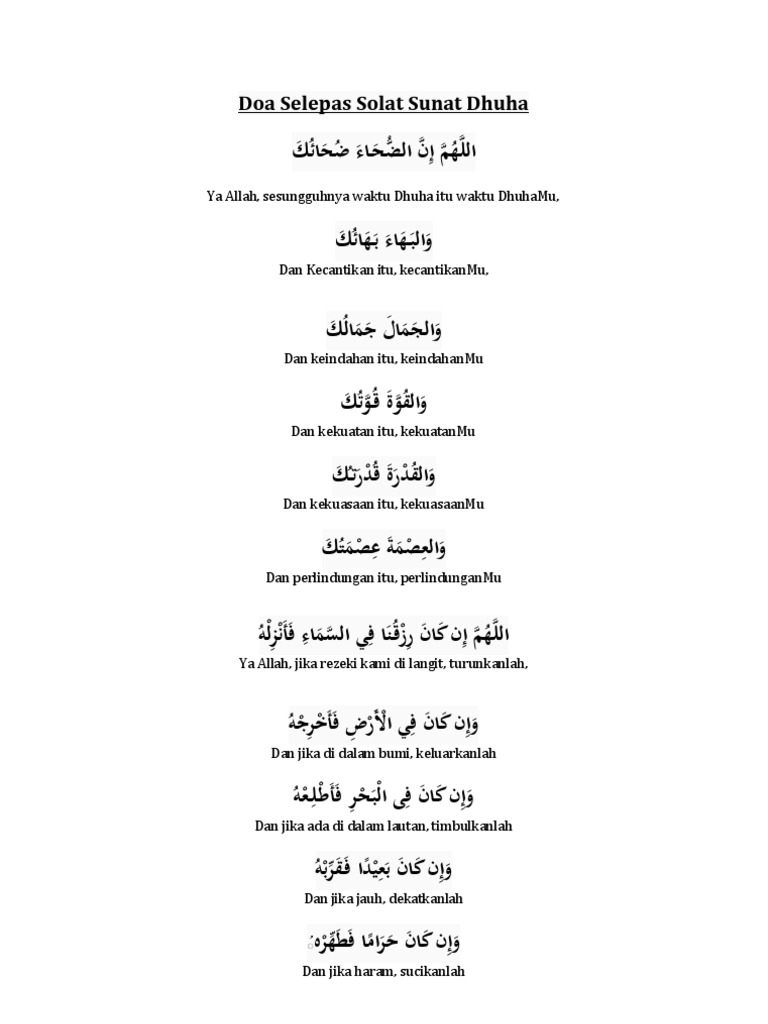 Doa Selepas Solat Sunat Dhuha
اللَّهُمَّ إِنَّ الضُّحَاءَ ضُحَائُكَ
Ya Allah, sesungguhnya waktu Dhuha itu waktu DhuhaMu,
وَالبَهَاءَ بَهَائُكَ
Dan Kecantikan itu, kecantikanMu,
وَالجَمَالَ جَمَالُكَ
Dan keindahan itu, keindahanMu
وَالقُوَّةَ قُوَّتُكَ
Dan kekuatan itu, kekuatanMu
وَالقُدْرَةَ قُدْرَتُكَ
Dan kekuasaan itu, kekuasaanMu
وَالعِصْمَةَ عِصْمَتُكَ
Dan perlindungan itu, perlindunganMu
اللَّهُمَّ إِن كَانَ رِزْقُنَا فِي السَّمَاءِ فَأَنْزِلْهُ
Ya Allah, jika rezeki kami di langit, turunkanlah,
وَإِن كَانَ فِي الْأَرْضِ فَأَخْرِجْهُ
Dan jika di dalam bumi, keluarkanlah
وَإِن كَانَ فِى الْبَحْرِ فَأَطْلِعْهُ
Dan jika ada di dalam lautan, timbulkanlah
وَإِن كَانَ بَعِيْدًا فَقَرِّبْهُ
Dan jika jauh, dekatkanlah
وَإِن كَانَ حَرَامًا فَطَهِّرْهُ
Dan jika haram, sucikanlah